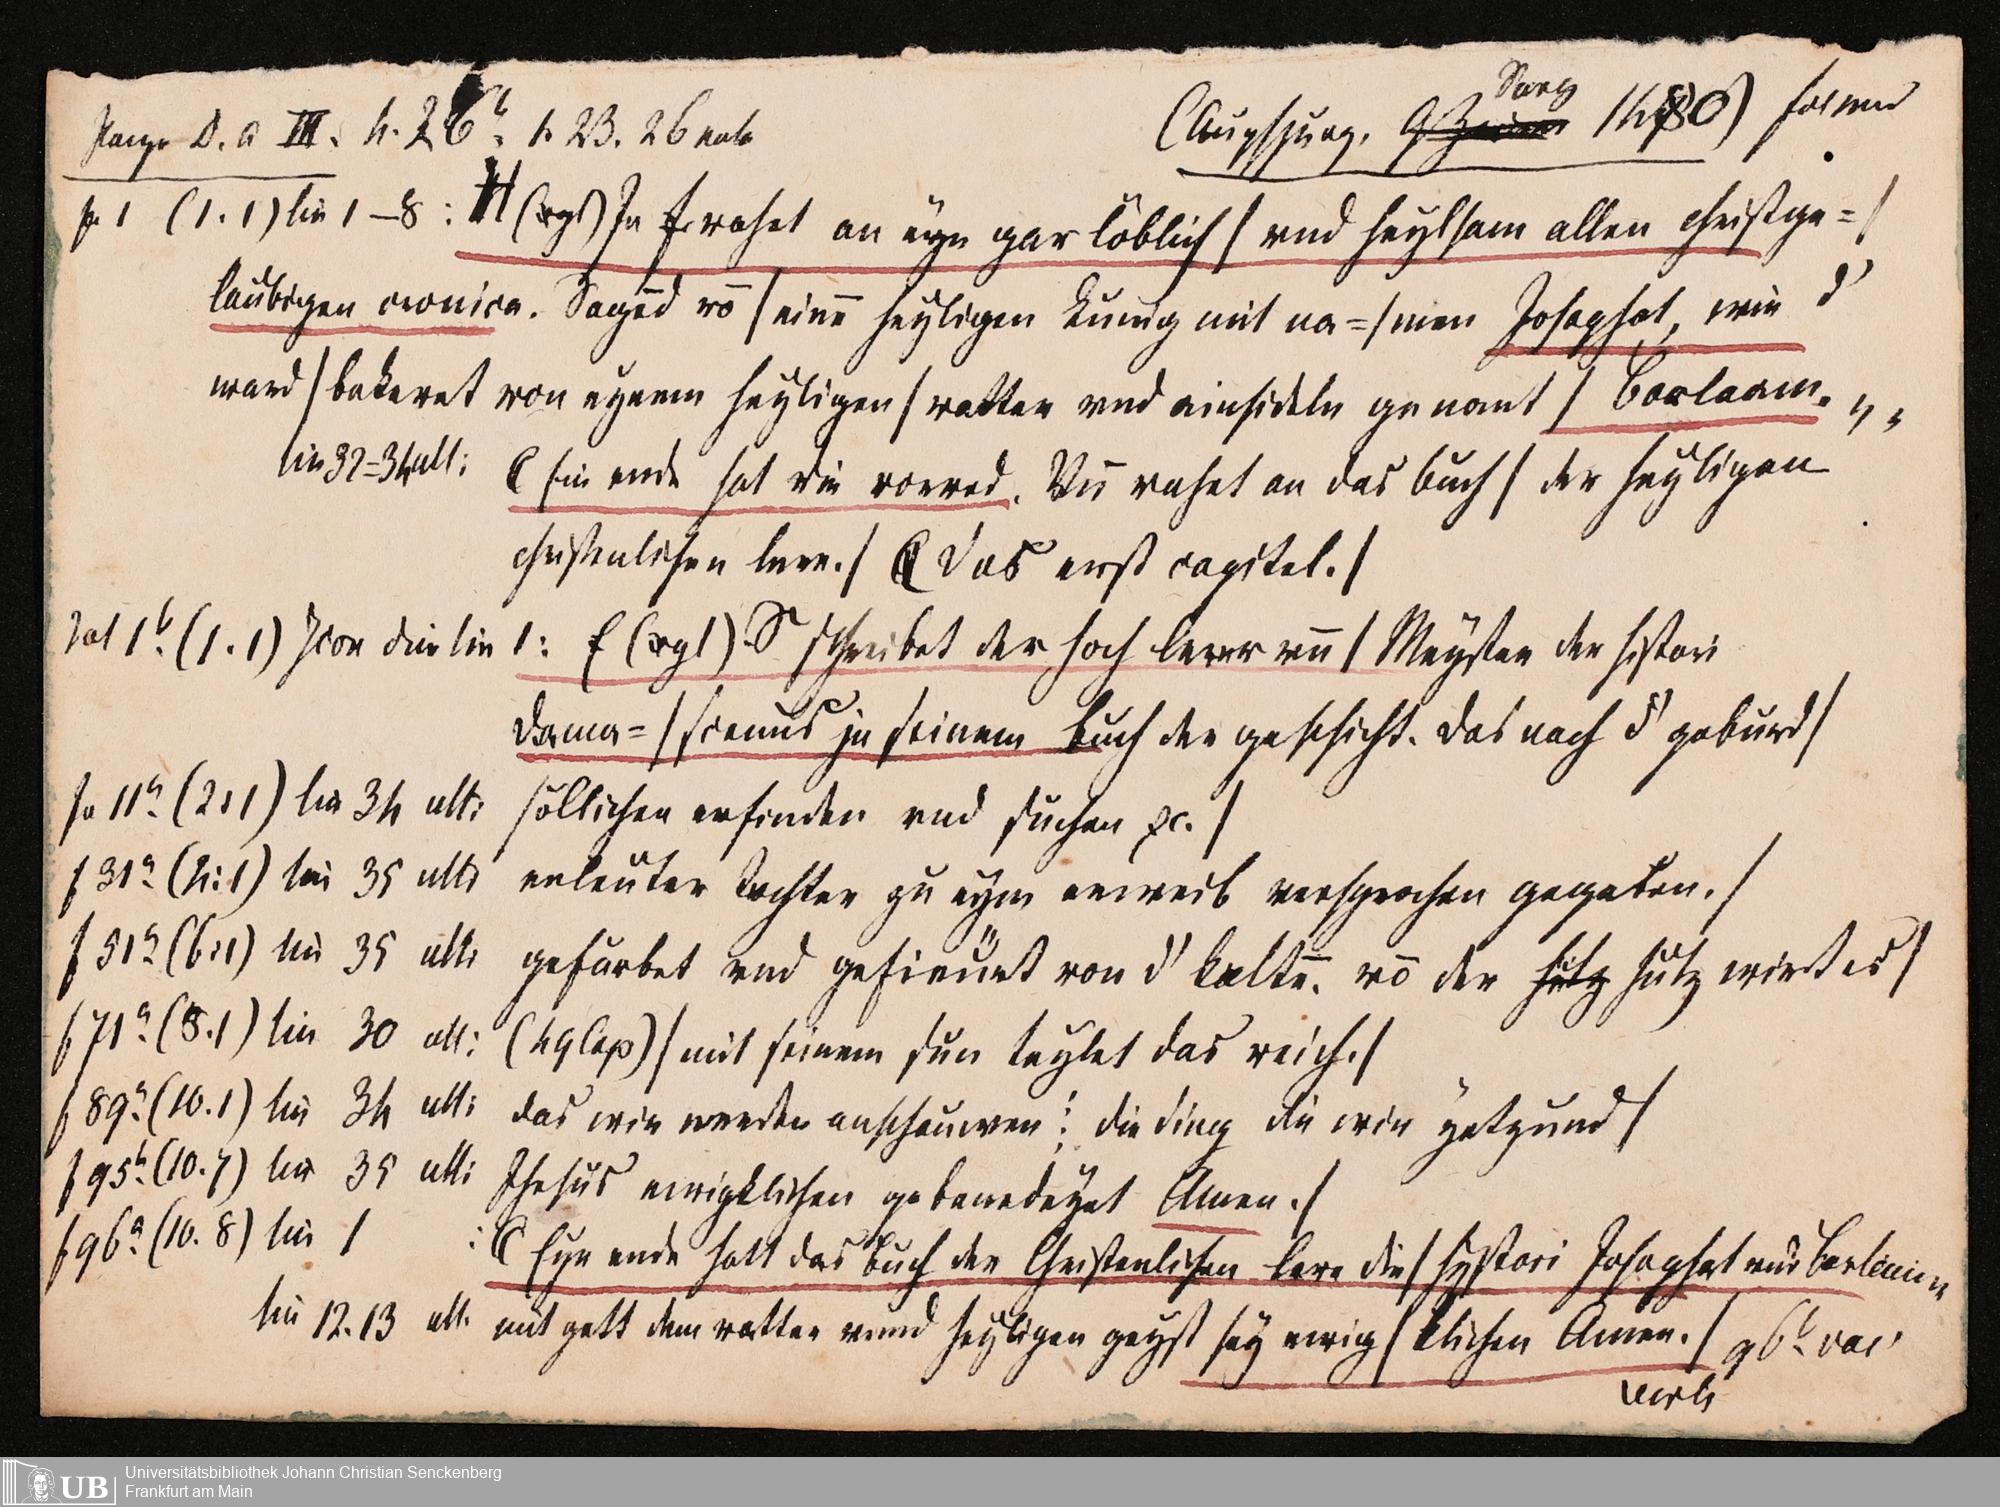 Panzer D. A III. 4. 26b. t. 23. 26 nota
(Augspurg, G Zainer Sorg 1480) folmin
fo 1 (1.1) lin 1–8: H (xgl) Je frahet an eyn gar löblich / vnd heylsam allen christge= /
laubigen cronica. Sagēd vō / eine heyligen kunig mit na= / men Josaphat, wie d'
ward / bekeret von eynem heyligen / vatter vnd einsideln genant / Barlaam.
lin 32=34 ult: C Ein ende hat die vorred. Vn̄ vahet an das buch / der heyligen
christenlichen lere. / C Das erst capitel. /
fol 1b. (1.1) lin 1: E (xgl) S schreibet der hoch lerer vn̄ / Meyster der histori
Dama= / scenus jn seinem buch der geschicht. das nach d' geburd /
fo 11a. (2:1) lin 34 ult: söllichen erfinden vnd suchen ꝛc. /
f 31a. (4:1) lin 35 ult: erleuter tochter zu eym eeweib versprochen gegeben. /
f 51a. (6:1) lin 35 ult: gefarbet vnd gefieürt von d' kelte. vō der hitz hitz wirt es /
f 71a. (8.1) lin 30 ult: (49 Cap) / mit seinem sun teylet das reich. /
f 89a. (10.1) lin 34 ult: das wir werden anschauwen : die ding die wir yetzund /
f 95b. (10.7) lin 35 ult: Jhesus ewigklichen gebenedeyet Amen. /
f 96a. (10.8) lin 1 : C Eyn ende hatt das buch der Christenlichen lere die / hystori Josaphat vnd Barlaam
lin 12.13 ult. mit gott dem vatter vnnd heyligen geyst sey ewig / klichen Amen. / 96b. vac'
Universitätsbibliothek Johann Christian Senckenberg
Frankfurt am Main
UB